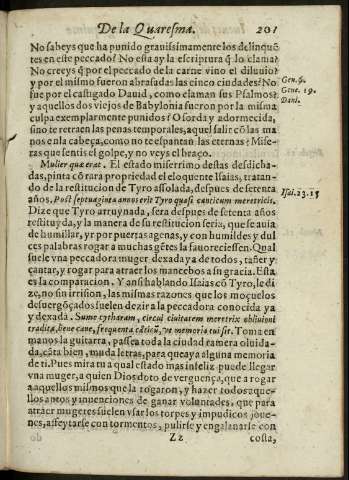 De la Quaresma. 201
No sabeys que ha punido grauissimamente los delinquẽ
tes en este peccado? No esta ay la escriptura q̃ lo clama?
No creeys q̃ por el peccado de la carne vino el diluuio?
y por el mismo fueron abrasadas las cinco ciudades? No
fue por el castigado Dauid, como claman sus Psalmos?
y aquellos dos viejos de Babylonia fueron por la misma
culpa exemplarmente punidos? O sorda y adormecida,
sino te retraen las penas temporales, aquel salir cõ las ma
nos en la cabeça, como no te espantan las eternas? Mise-
ras que sentis el golpe, y no veys el braço.
Mulier quæ erat. El estado miserrimo destas desdicha-
das, pinta cõ rara propriedad el eloquente Isaias, tratan-
do de la restitucion de Tyro assolada, despues de setenta
años. Post septuaginta annos erit Tyro quasi canticum meretricis.
Dize que Tyro arruynada, sera despues de setenta años
restituyda, y la manera de su restitucion seria, que se auia
de humillar, yr por puertas agenas, y con humildes y dul
ces palabras rogar a muchas gẽtes la fauoreciessen. Qual
suele vna peccadora muger dexada ya de todos, tañer y
cantar, y rogar para atraer los mancebos a su gracia. Esta
es la comparacion. Y ansi hablando Isaias cõ Tyro, le di
ze, no sin irrision, las mismas razones que los moçuelos
desuergõçados suelen dezir a la peccadora conocida ya
y dexada. Sume cytharam, circui ciuitatem meretrix obliuioni
tradita, bene cane, frequenta cãticũ, vt memoria tui sit. Toma en
manos la guitarra, passea toda la ciudad ramera oluida-
da, cãta bien, muda letras, para que aya alguna memoria
de ti. Pues mira tu a qual estado mas infeliz puede llegar
vna muger, a quien Dios doto de verguença, que a rogar
a aquellos mismos que la rogaron, y hazer todos aque-
llos antos y inuenciones de ganar voluntades, que para
atraer mugeres suelen vsar los torpes y impudicos joue-
nes, affeytarse con tormentos, pulirse y engalanarse con
Zz costa,
Gen. 6.
Gene. 19.
Dani.
Isai. 23. 15